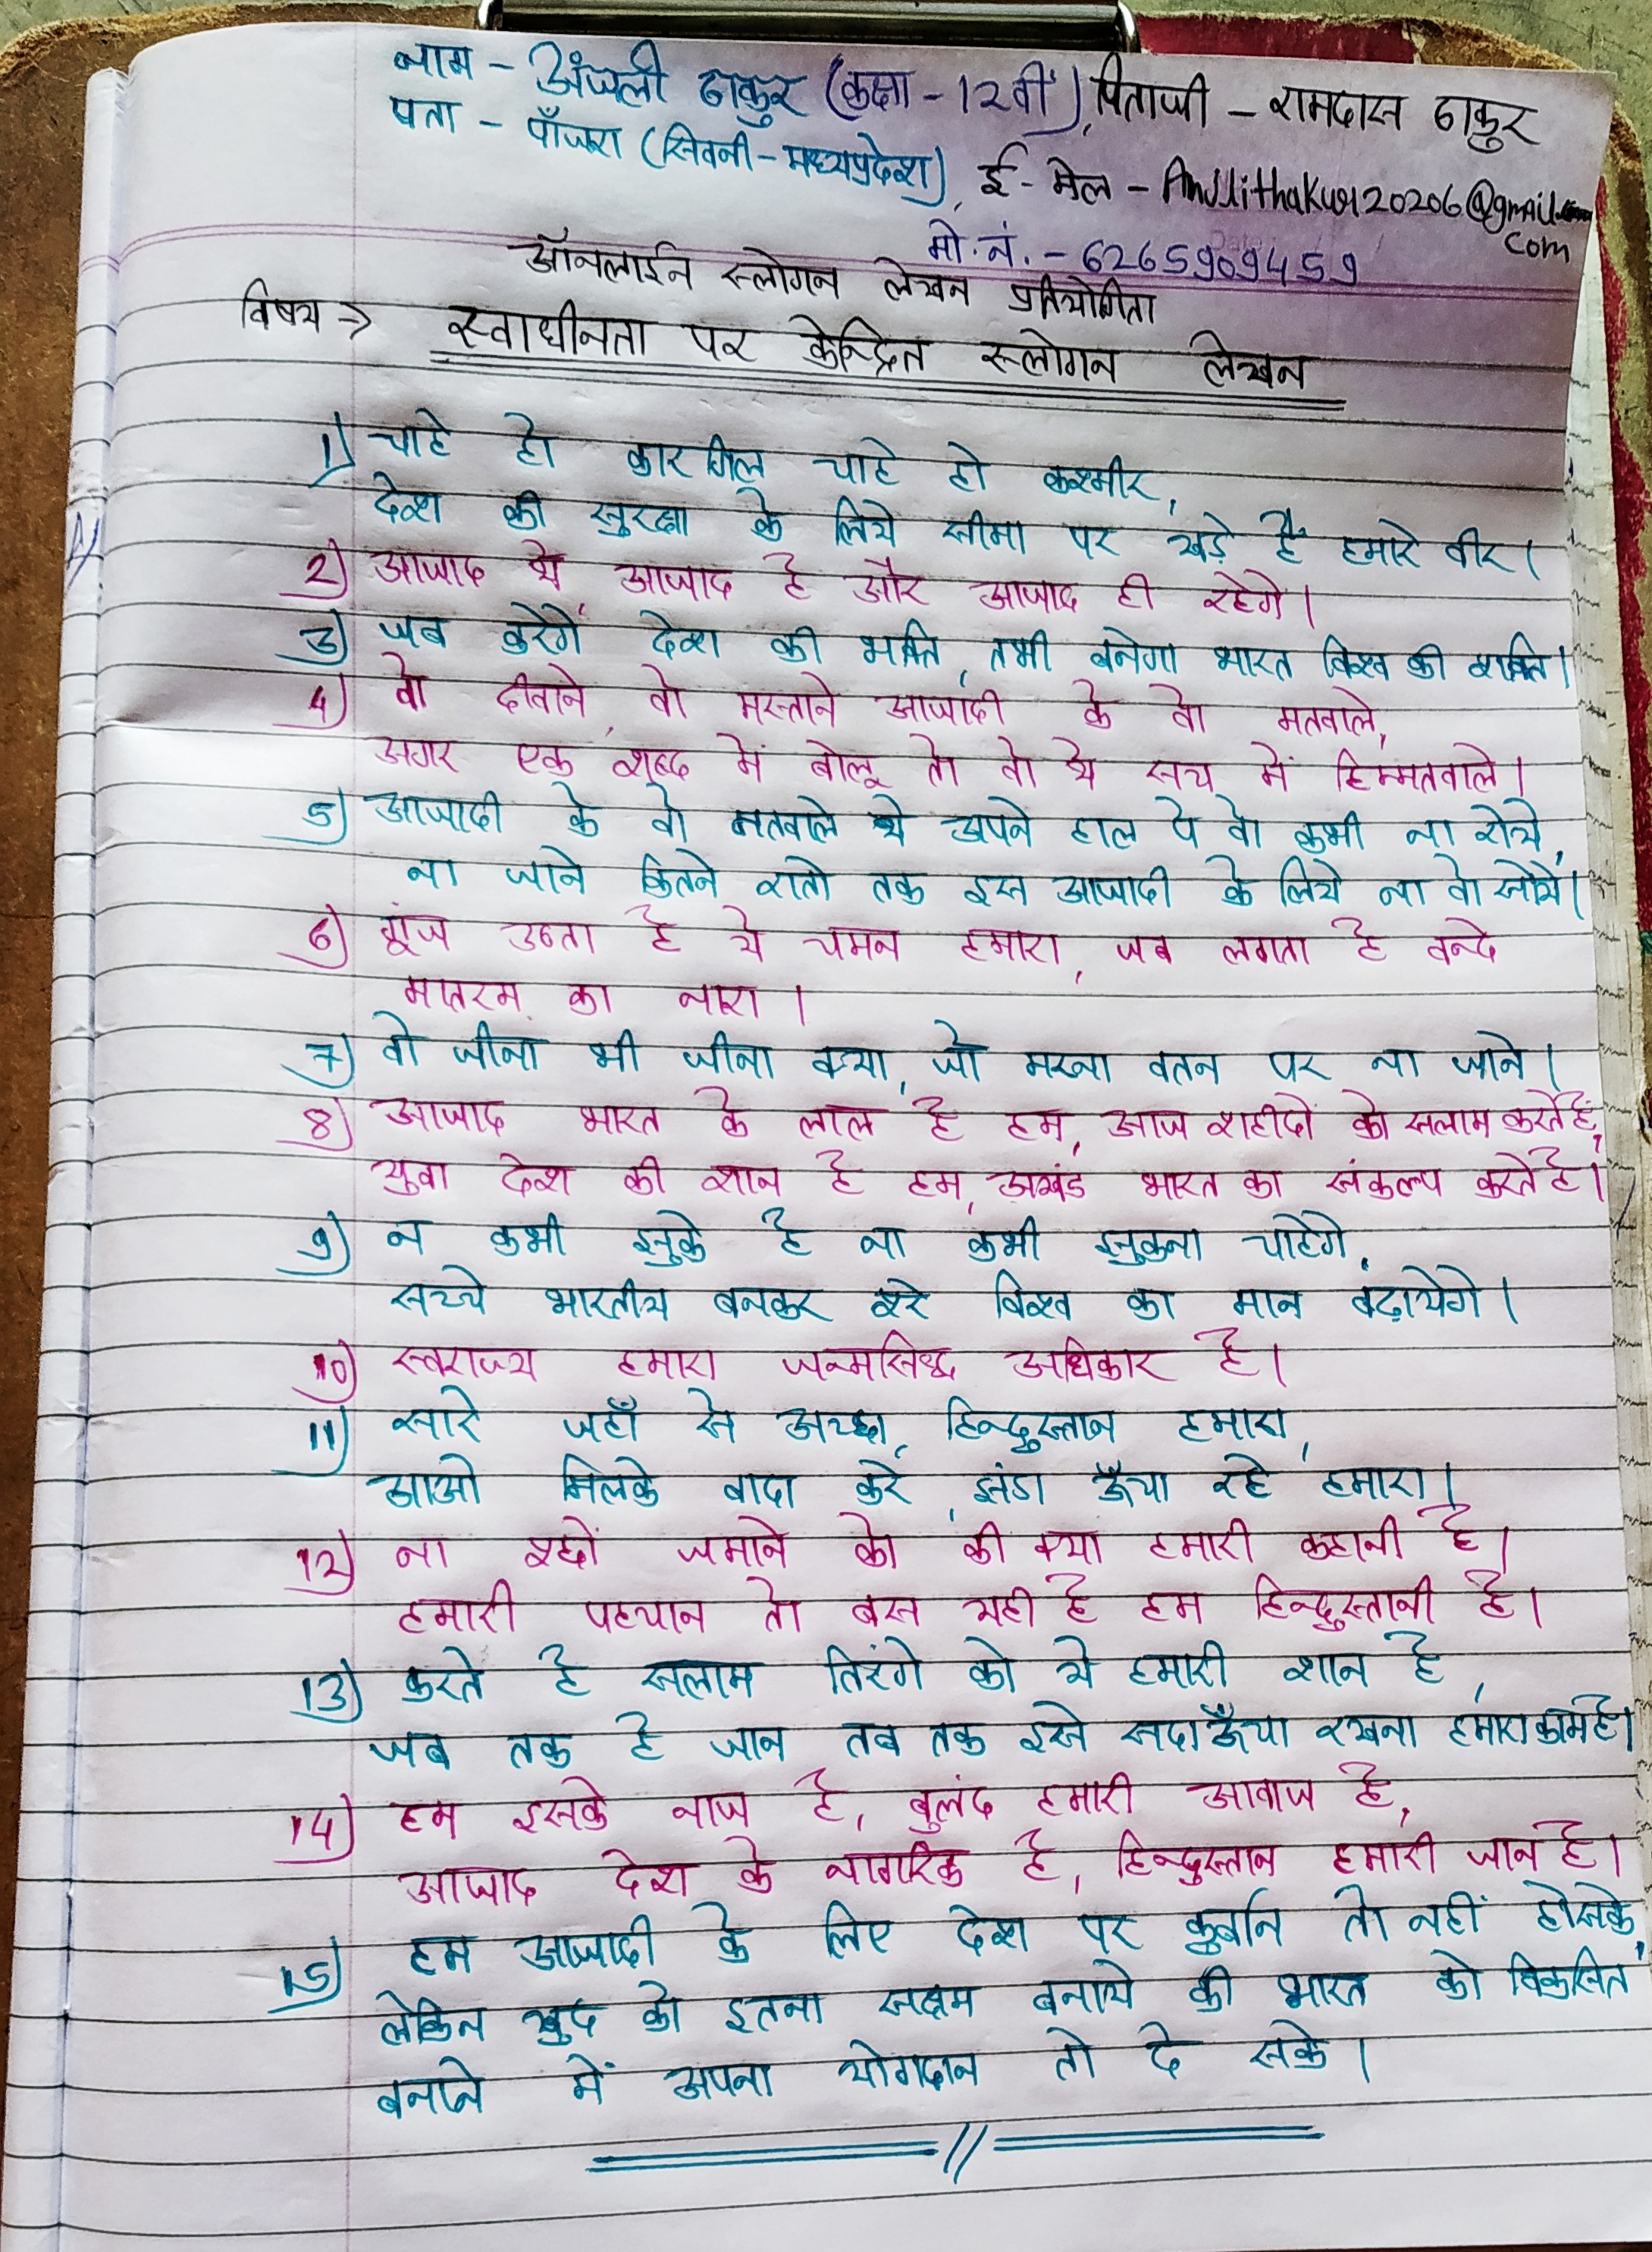 नाम - अंजली ठाकुर (कक्षा - 12वीं), पिताजी - रामदास ठाकुर
पता - पाँजरा (सिवनी - मध्यप्रदेश), ई-मेल - Anjlithakur120206@gmail.com
मो. नं. - 6265909459
ऑनलाईन स्लोगन लेखन प्रतियोगिता
विषय → स्वाधीनता पर केन्द्रित स्लोगन लेखन
1) चाहे हो कारगिल चाहे हो कश्मीर,
देश की सुरक्षा के लिये सीमा पर खड़े हैं हमारे वीर।
2) आजाद थे आजाद है और आजाद ही रहेगे।
3) जब करेगें देश की भक्ति, तभी बनेगा भारत विश्व की शक्ति।
4) वो दीवाने, वो मस्ताने आजादी के वो मतवाले,
अगर एक शब्द में बोलू तो वो थे सच में हिम्मतवाले।
5) आजादी के वो मतवाले थे अपने हाल पे वो कभी ना रोये,
ना जाने कितने रातो तक इस आजादी के लिये ना वो सोये।
6) गूंज उठता है ये चमन हमारा, जब लगता है वन्दे
मातरम् का नारा।
7) वो जीना भी जीना क्या, जो मरना वतन पर ना जाने।
8) आजाद भारत के लाल है हम, आज शहीदों को सलाम करते हैं,
युवा देश की शान है हम, अखंड भारत का संकल्प करते है।
9) न कभी झुके है ना कभी झुकना चाहेगे,
सच्चे भारतीय बनकर पूरे विश्व का मान बढ़ायेगे।
10) स्वराज्य हमारा जन्मसिध्द अधिकार है।
11) सारे जहाँ से अच्छा, हिन्दुस्तान हमारा,
आओ मिलके वादा करें, झंडा ऊँचा रहे हमारा।
12) ना पूछो जमाने को की क्या हमारी कहानी है।
हमारी पहचान तो बस यही है हम हिन्दुस्तानी है।
13) करते है सलाम तिरंगे को ये हमारी शान है,
जब तक है जान तब तक इसे सदा ऊँचा रखना हमारा काम है।
14) हम इसके नाज है, बुलंद हमारी आवाज है,
आजाद देश के नागरिक है, हिन्दुस्तान हमारी जान है।
15) हम आजादी के लिए देश पर कुर्बान तो नहीं हो सके,
लेकिन खुद को इतना सक्षम बनाये की भारत को विकसित
बनाने में अपना योगदान तो दे सके।